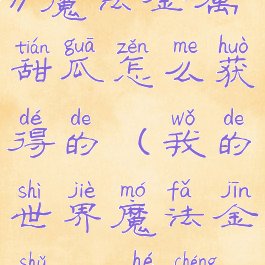 魔法金属
tián guā zěn me huò
甜瓜怎么获
dé de wǒ de
得的（我的
shì jiè mó fǎ jīn
世界魔法金
shǔ hé chéng